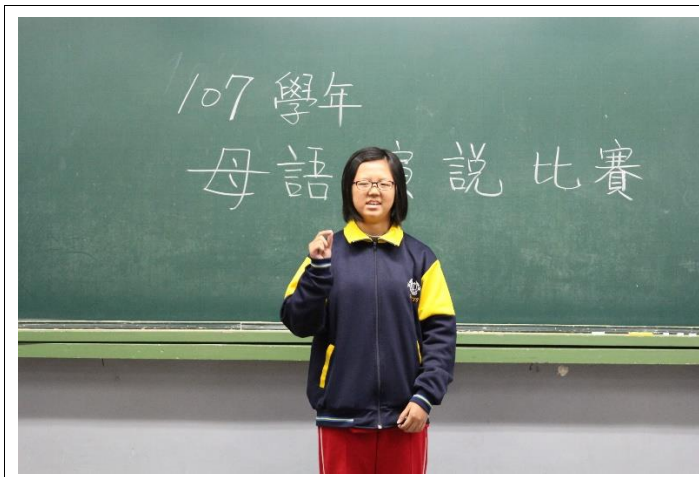 107 學年
母語演説比賽